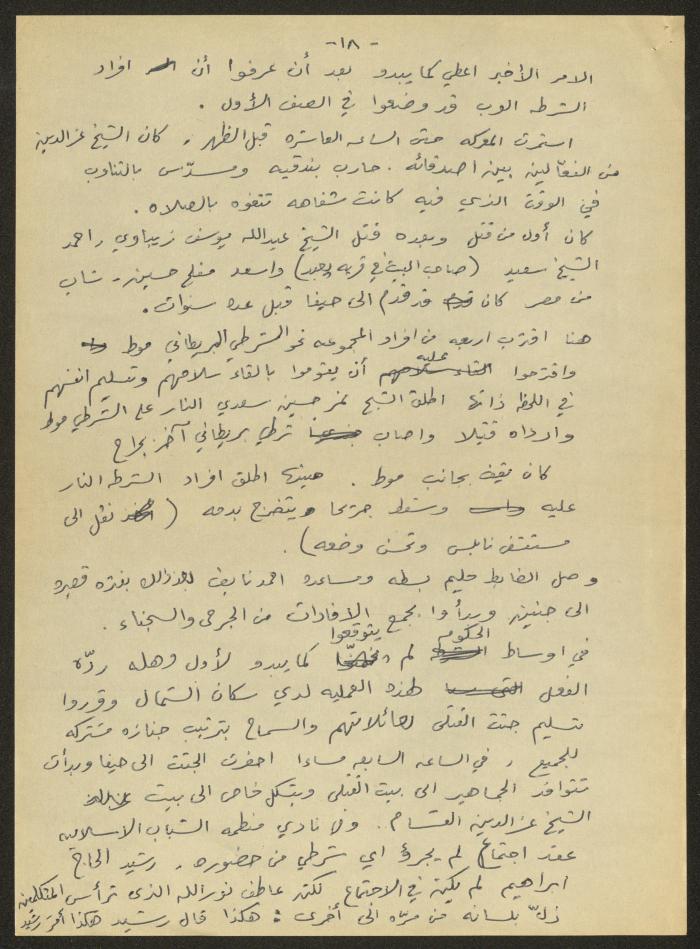 -١٨-
الامر الأخير اعطي كما يبدو بعد أن عرفوا أن افراد
الشرطه العرب قد وضعوا في الصف الأول .
استمرت المعركه حتى الساعه العاشره قبل الظهر . كان الشيخ عزالدين
من الفعّالين بين اصدقائه . حارب ببندقيه ومسدّس بالتناوب
في الوقت الذي فيه كانت شفاهه تتفوه بالصلاه .
كان أول من قتل وبعده قتل الشيخ عبدالله يوسف زيباوي ، احمد
الشيخ سعيد (صاحب البيت في قريه يعبد) واسعد مفلح حسين - شاب
من مصر كان قد قدم الى حيفا قبل عده سنوات .
هنا اقترب اربعه من افراد المجموعه نحو الشرطي البريطاني موط
واقترحوا عليه أن يقوموا بالقاء سلاحهم وتسليم انفسهم
في اللحظه ذاتها اطلق الشيخ نمر حسين سعدي النار على الشرطي موط
وارداه قتيلا واصاب شرطي بريطاني آخر بجراح
كان يقف بجانب موط . حينها اطلق افراد الشرطه النار
عليه وسقط جريحا يتضرج بدمه ( نقل الى
مستشفى نابلس وتحسن وضعه) .
وصل الضابط حليم بسطه ومساعده احمد نايف بعد ذلك بفتره قصيره
الى جنين وبدأوا بجمع الافادات من الجرحى والسجناء .
في اوساط الحكومه لم يتوقعوا كما يبدو لأول وهله ردّه
الفعل لهذه العمليه لدى سكان الشمال وقرروا
تسليم جثث القتلى لعائلاتهم والسماح بترتيب جنازه مشتركه
للجميع ، في الساعه السابعه مساءا احضرت الجثث الى حيفا وبدأت
تتوافد الجماهير الى بيت القتلى وبشكل خاص الى بيت
الشيخ عزالدين القسام . وفي نادي منظمه الشباب الاسلاميه
عقد اجتماع لم يجرؤ اي شرطي من حضوره . رشيد الحاج
ابراهيم لم يكن في الاجتماع لكن عاطف نورالله الذي ترأس المتكلمين
زلّ بلسانه من مرّه الى أخرى : هكذا قال رشيد هكذا أمر رشيد